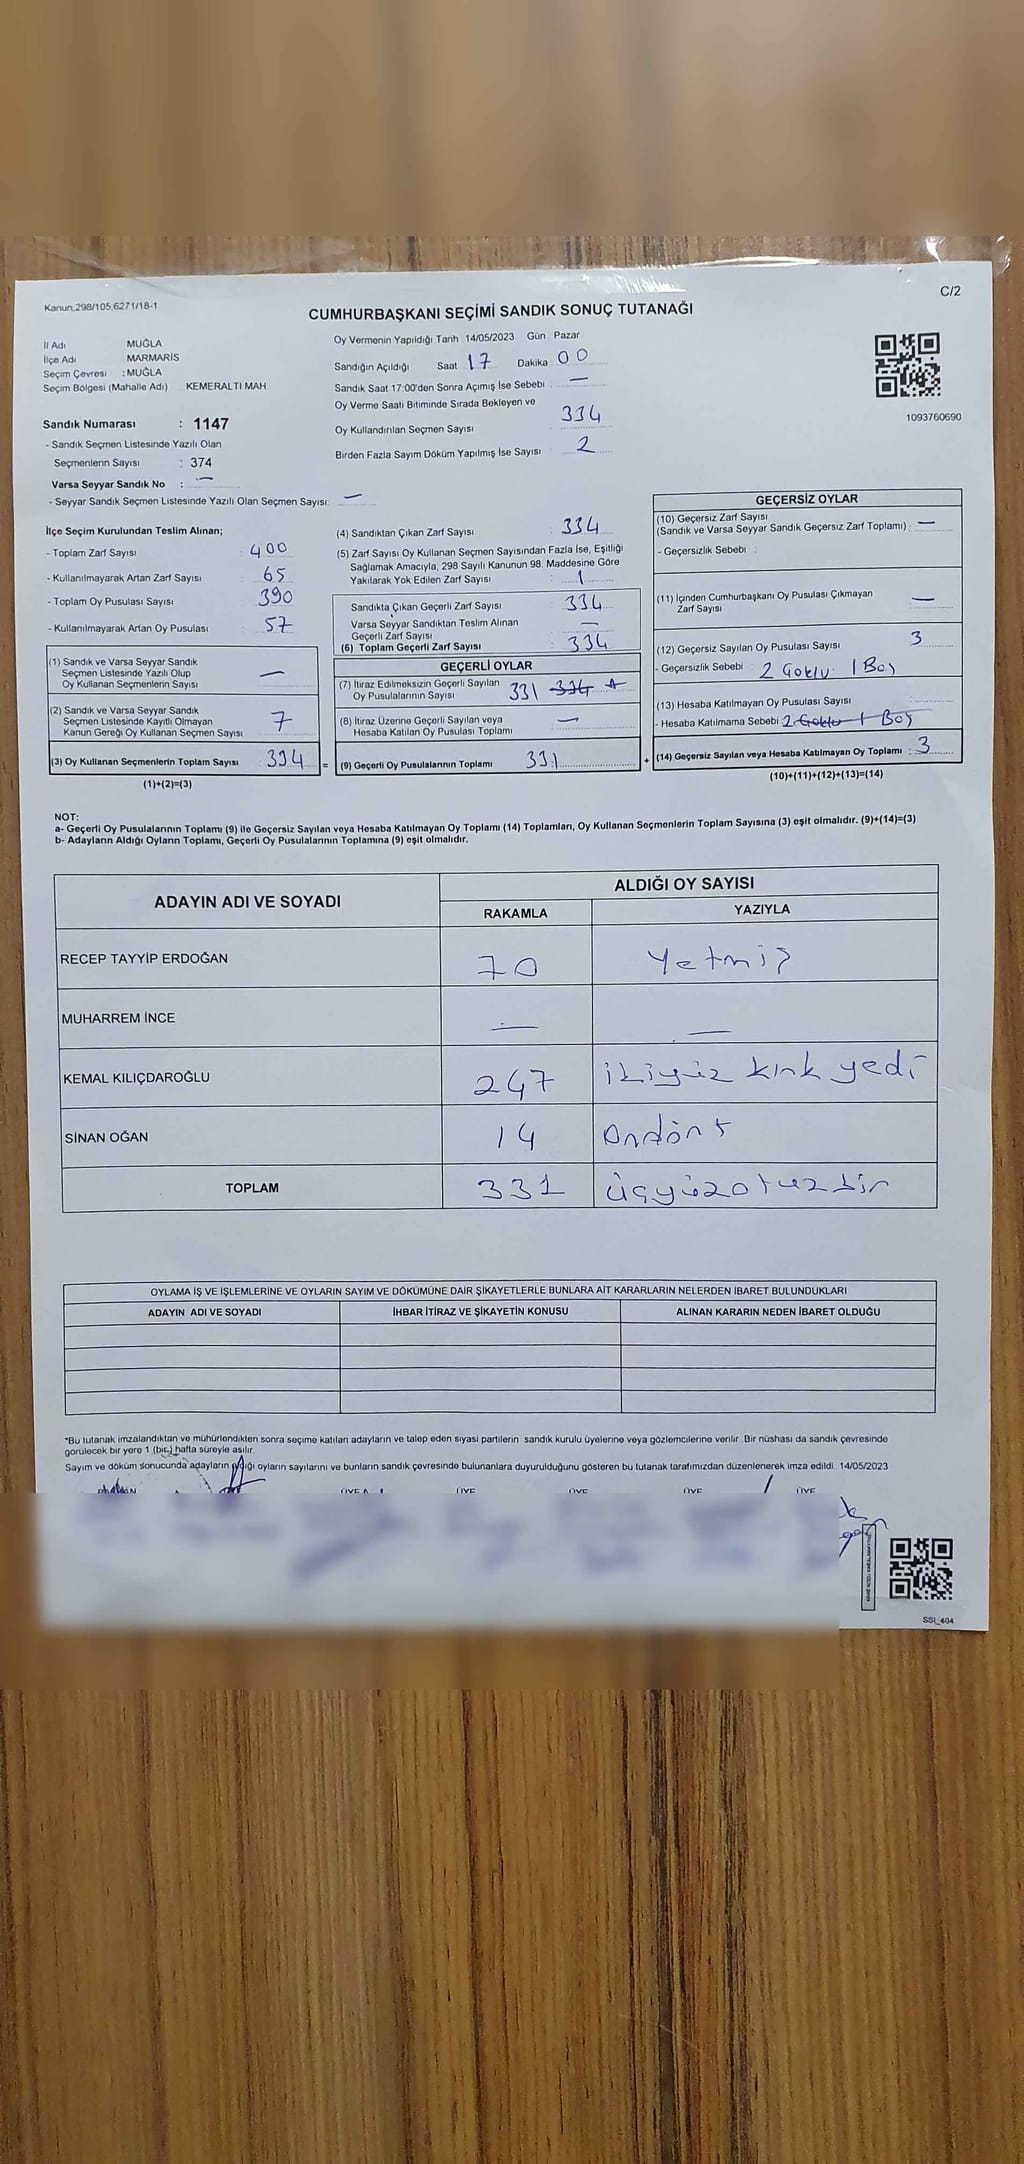 Kanun,298/105,6271/18-1
C/2
CUMHURBAŞKANI SEÇİMİ SANDIK SONUÇ TUTANAĞI
İl Adı MUĞLA
İlçe Adı MARMARİS
Seçim Çevresi : MUĞLA
Seçim Bölgesi (Mahalle Adı) KEMERALTI MAH
Sandık Numarası : 1147
- Sandık Seçmen Listesinde Yazılı Olan
Seçmenlerin Sayısı : 374
Varsa Seyyar Sandık No : —
- Seyyar Sandık Seçmen Listesinde Yazılı Olan Seçmen Sayısı: —
Oy Vermenin Yapıldığı Tarih :14/05/2023 Gün Pazar
Sandığın Açıldığı Saat 17 Dakika 00
Sandık Saat 17:00'den Sonra Açımış İse Sebebi : —
Oy Verme Saati Bitiminde Sırada Bekleyen ve
Oy Kullandırılan Seçmen Sayısı 334
Birden Fazla Sayım Döküm Yapılmış İse Sayısı : 2
1093760690
İlçe Seçim Kurulundan Teslim Alınan;
- Toplam Zarf Sayısı : 400
- Kullanılmayarak Artan Zarf Sayısı : 65
- Toplam Oy Pusulası Sayısı : 390
- Kullanılmayarak Artan Oy Pusulası : 57
(1) Sandık ve Varsa Seyyar Sandık
Seçmen Listesinde Yazılı Olup
Oy Kullanan Seçmenlerin Sayısı : —
(2) Sandık ve Varsa Seyyar Sandık
Seçmen Listesinde Kayıtlı Olmayan
Kanun Gereği Oy Kullanan Seçmen Sayısı : 7
(3) Oy Kullanan Seçmenlerin Toplam Sayısı : 334 =
(1)+(2)=(3)
(4) Sandıktan Çıkan Zarf Sayısı : 334
(5) Zarf Sayısı Oy Kullanan Seçmen Sayısından Fazla İse, Eşitliği
Sağlamak Amacıyla, 298 Sayılı Kanunun 98. Maddesine Göre
Yakılarak Yok Edilen Zarf Sayısı : 1
Sandıkta Çıkan Geçerli Zarf Sayısı : 334
Varsa Seyyar Sandıktan Teslim Alınan
Geçerli Zarf Sayısı : —
(6) Toplam Geçerli Zarf Sayısı : 334
GEÇERLİ OYLAR
(7) İtiraz Edilmeksizin Geçerli Sayılan
Oy Pusulalarının Sayısı 331 334
(8) İtiraz Üzerine Geçerli Sayılan veya
Hesaba Katılan Oy Pusulası Toplamı : —
(9) Geçerli Oy Pusulalarının Toplamı : 331 +
GEÇERSİZ OYLAR
(10) Geçersiz Zarf Sayısı
(Sandık ve Varsa Seyyar Sandık Geçersiz Zarf Toplamı) : —
- Geçersizlik Sebebi :
(11) İçinden Cumhurbaşkanı Oy Pusulası Çıkmayan
Zarf Sayısı : —
(12) Geçersiz Sayılan Oy Pusulası Sayısı : 3
- Geçersizlik Sebebi : 2 Çoklu 1 Boş
(13) Hesaba Katılmayan Oy Pusulası Sayısı :
- Hesaba Katılmama Sebebi 2 Çoklu 1 Boş
(14) Geçersiz Sayılan veya Hesaba Katılmayan Oy Toplamı : 3
(10)+(11)+(12)+(13)=(14)
NOT:
a- Geçerli Oy Pusulalarının Toplamı (9) ile Geçersiz Sayılan veya Hesaba Katılmayan Oy Toplamı (14) Toplamları, Oy Kullanan Seçmenlerin Toplam Sayısına (3) eşit olmalıdır. (9)+(14)=(3)
b- Adayların Aldığı Oyların Toplamı, Geçerli Oy Pusulalarının Toplamına (9) eşit olmalıdır.
ADAYIN ADI VE SOYADI ALDIĞI OY SAYISI
RAKAMLA YAZIYLA
RECEP TAYYİP ERDOĞAN 70 Yetmiş
MUHARREM İNCE — —
KEMAL KILIÇDAROĞLU 247 ikiyüz kırk yedi
SİNAN OĞAN 14 Ondört
TOPLAM 331 üçyüzotuzbir
OYLAMA İŞ VE İŞLEMLERİNE VE OYLARIN SAYIM VE DÖKÜMÜNE DAİR ŞİKAYETLERLE BUNLARA AİT KARARLARIN NELERDEN İBARET BULUNDUKLARI
ADAYIN ADI VE SOYADI İHBAR İTİRAZ VE ŞİKAYETİN KONUSU ALINAN KARARIN NEDEN İBARET OLDUĞU
*Bu tutanak imzalandıktan ve mühürlendikten sonra seçime katılan adayların ve talep eden siyasi partilerin sandık kurulu üyelerine veya gözlemcilerine verilir. Bir nüshası da sandık çevresinde
görülecek bir yere 1 (bir) hafta süreyle asılır.
Sayım ve döküm sonucunda adayların aldığı oyların sayılarını ve bunların sandık çevresinde bulunanlara duyurulduğunu gösteren bu tutanak tarafımızdan düzenlenerek imza edildi. 14/05/2023
ÜYE ÜYE ÜYE ÜYE ÜYE
SSI_404